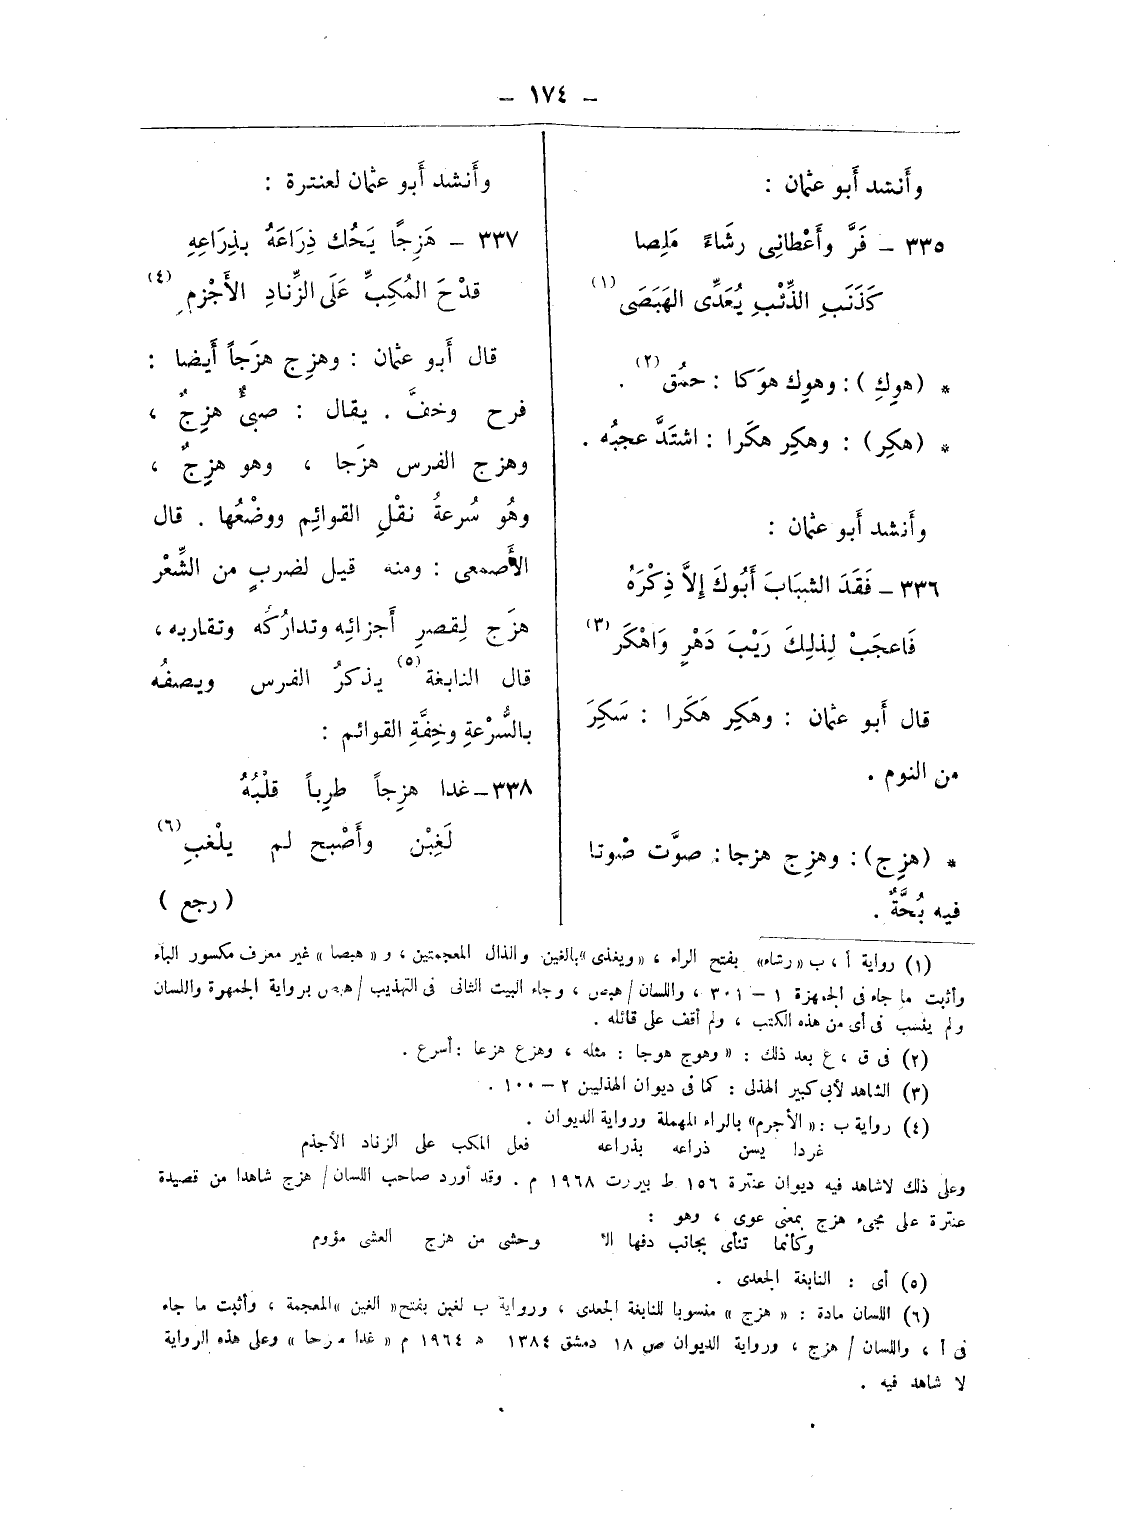 – ١٧٤ –
وأَنشد أَبو عثمان :
٣٣٥ – فَرَّ وأَعْطانِى رشَاءً مَلِصا
كَذَنَبِ الذِّئْبِ يُعَدِّى الهَبَصَى (١)
* (هوِك) : وهوِك هوَكا : حمُق (٢) .
* (هكِر) : وهكِر هكَرا : اشتَدَّ عجبُه .
وأَنشد أَبو عثمان :
٣٣٦ – فَقَدَ الشبَابَ أَبُوكَ إِلاَّ ذِكْرَهُ
فَاعجَبْ لِذلِكَ رَيْبَ دَهْرٍ وَاهْكَر (٣)
قال أَبو عثمان : وهَكِر هَكَرا : سَكِرَ
من النوم .
* (هزِج) : وهزِج هزجا : صوَّت صْوتا
فيه بُحَّةٌ .
وأَنشد أَبو عثمان لعنترة :
٣٣٧ – هَزِجًا يَحُك ذِرَاعَهُ بذِرَاعِهِ
قدْحَ المُكِبِّ عَلَى الزِّنادِ الأَجْزمِ (٤)
قال أَبو عثمان : وهزِج هزَجاً أَيضا :
فرح وخفَّ . يقال : صبىٌّ هزِجٌ ،
وهزج الفرس هزَجا ، وهو هزِجٌ ،
وهُو سُرعةُ نقْلِ القوائِم ووضْعُها . قال
الأَصمعى : ومنه قيل لضربٍ من الشِّعْر
هزَج لِقصرِ أَجزائِه وتدارُكُه وتقاربه ،
قال النابغة (٥) يذكرُ الفرس ويصفُه
بالسُّرْعةِ وخِفَّةِ القوائم :
٣٣٨ – غدا هزِجاً طرِباً قلْبُهُ
لَغِبْن وأَصْبح لم يلْغبِ (٦)
( رجع )
(١) رواية أ ، ب «رشاء» بفتح الراء ، «ويغذى» بالغين والذال المعجمتين ، و « هبصا » غير معرف مكسور الباء
وأثبت ما جاء فى الجمهرة ١ – ٣٠١ ، واللسان / هبص ، وجاء البيت الثانى فى التهذيب / هبص برواية الجمهرة واللسان
ولم ينسب فى أى من هذه الكتب ، ولم أقف على قائله .
(٢) فى ق ، ع بعد ذلك : « وهوج هوجا : مثله ، وهزع هزعا : أسرع .
(٣) الشاهد لأبى كبير الهذلى : كما فى ديوان الهذليين ٢ – ١٠٠ .
(٤) رواية ب : « الأجرم» بالراء المهملة ورواية الديوان .
غردا يسن ذراعه بذراعه فعل المكب على الزناد الأجذم
وعلى ذلك لاشاهد فيه ديوان عنترة ١٥٦ ط بيررت ١٩٦٨ م . وقد أورد صاحب اللسان / هزج شاهدا من قصيدة
عنترة على مجىء هزج بمعنى عوى ، وهو :
وكأنما تنأى بجانب دفها الـ وحشى من هزج العشى مؤوم
(٥) أى : النابغة الجعدى .
(٦) اللسان مادة : « هزج » منسوبا للنابغة الجعدى ، ورواية ب لغبن بفتح « الغين » المعجمة ، وأثبت ما جاء
فى أ ، واللسان / هزج ، ورواية الديوان ص ١٨ دمشق ١٣٨٤ ه ١٩٦٤ م « غدا مرحا » وعلى هذه الرواية
لا شاهد فيه .